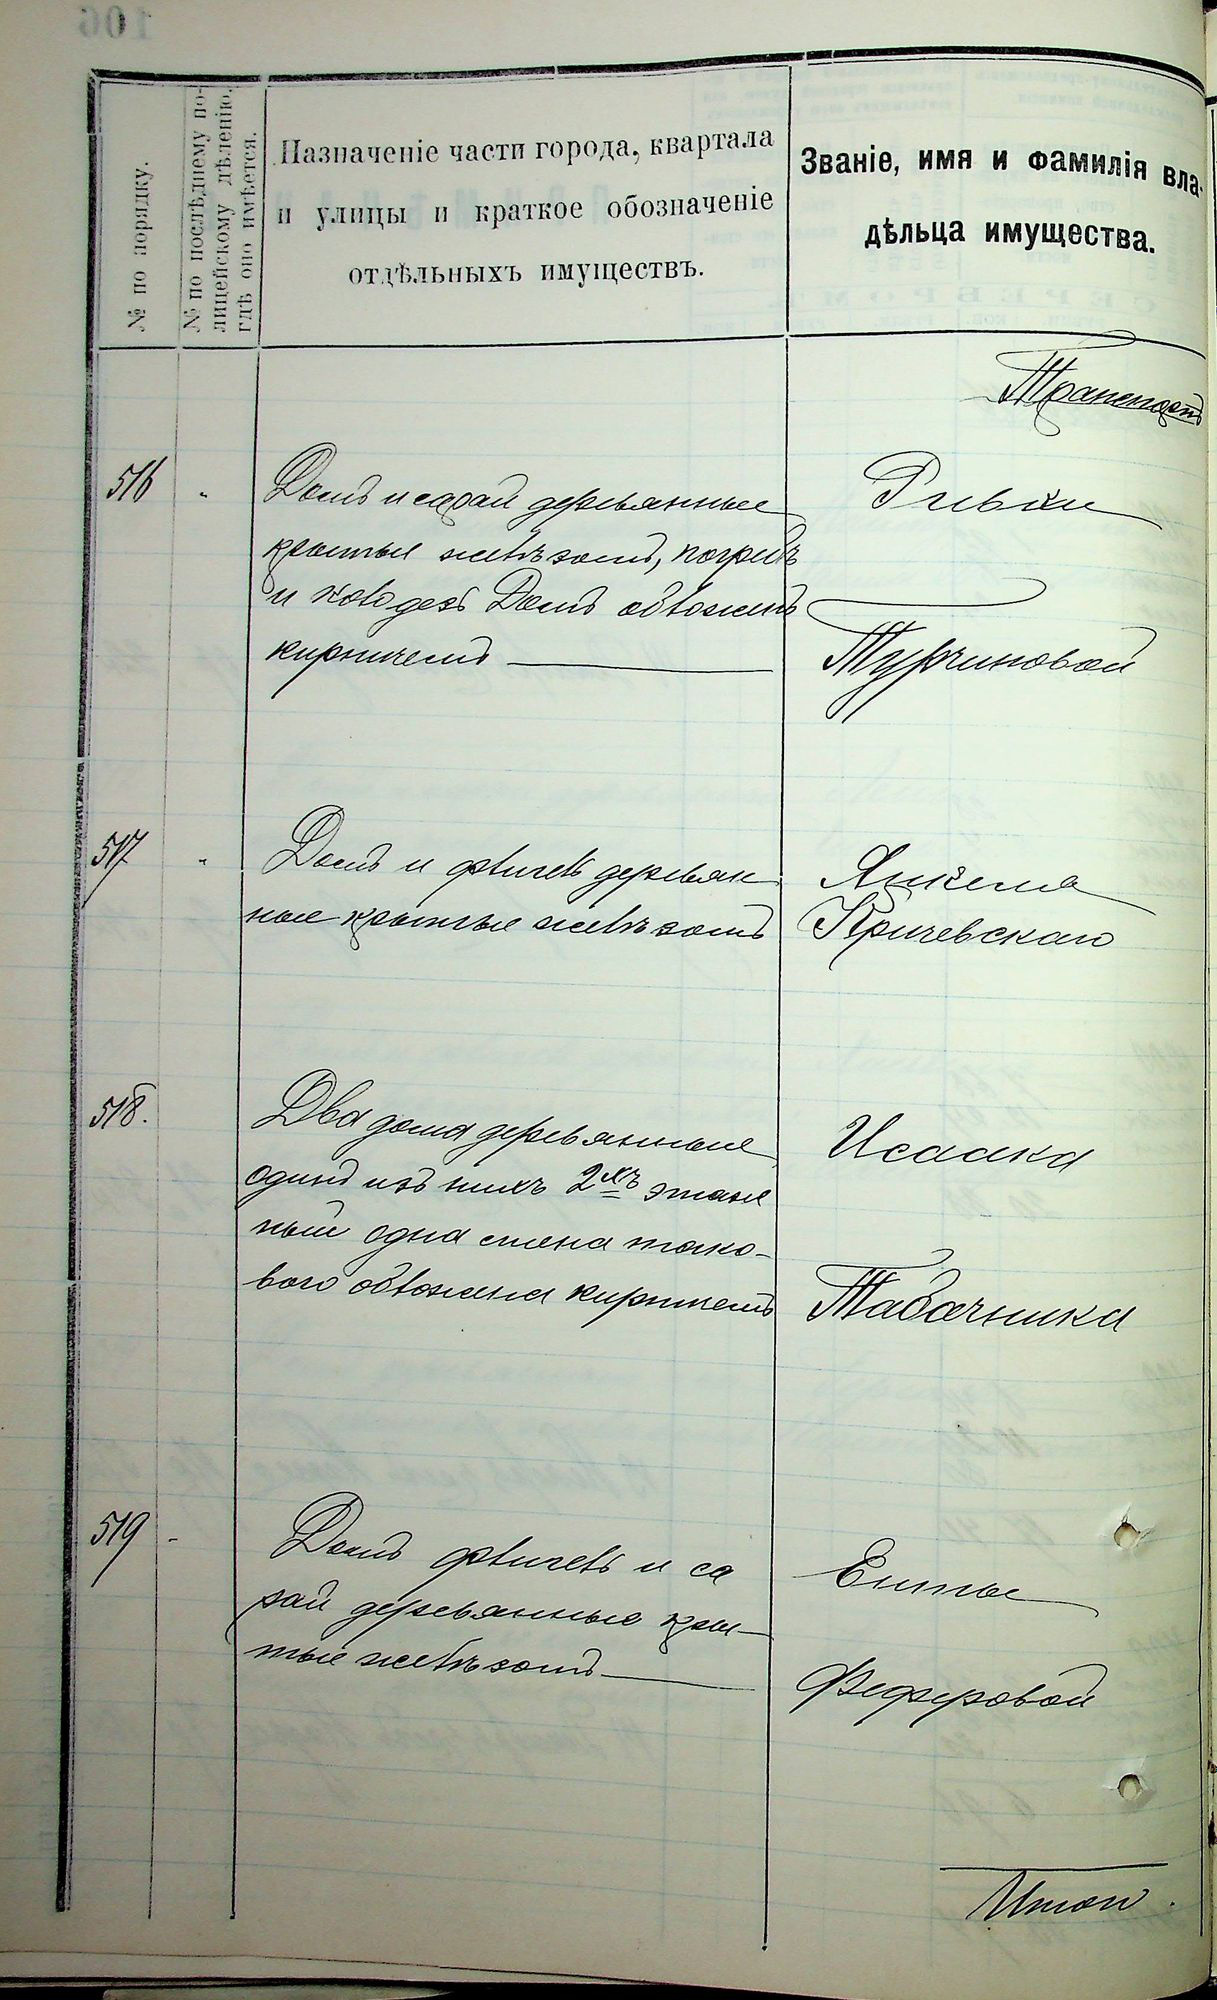 № по порядку.
№ по послѣднему по-
лицейскому дѣленію,
гдѣ оно имѣется.
Назначеніе части города, квартала
и улицы и краткое обозначеніе
отдѣльныхъ имуществъ.
Званіе, имя и фамилія вла-
дѣльца имущества.
Транспортъ
516 "
Домъ и сарай деревянные
крытые желѣзомъ, погребъ
и колодезь Домъ обложенъ
кирпичемъ
Ривки
Турчиновой
517 "
Домъ и флигель деревян
ные крытые желѣзомъ
Янкеля
Кричевскаго
518.
Два дома деревянные
одинъ изъ нихъ 2хъ этаж
ный одна стена тако-
вого обложена кирпичемъ
Исаака
Табачника
519 -
Домъ флигель и са
рай деревянные кры-
тые желѣзомъ
Енты
Феферовой
Итого.